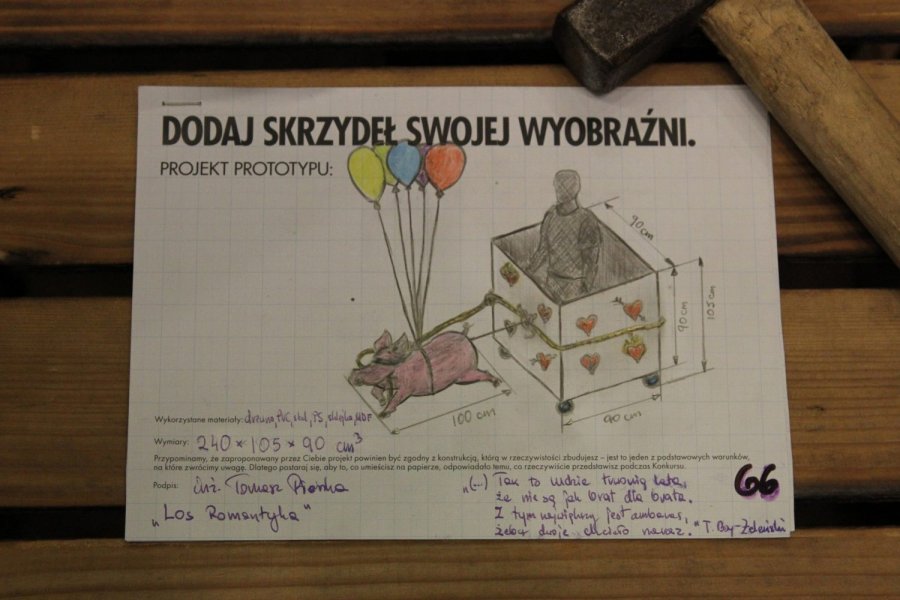 DODAJ SKRZYDEŁ SWOJEJ WYOBRAŹNI.
PROJEKT PROTOTYPU:
90 cm
90 cm
105 cm
100 cm
90 cm
Wykorzystane materiały: drewno, PVC, stal, PS, sklejka, MDF
Wymiary: 240 × 105 × 90 cm³
Przypominamy, że zaproponowany przez Ciebie projekt powinien być zgodny z konstrukcją, którą w rzeczywistości zbudujesz – jest to jeden z podstawowych warunków,
na które zwrócimy uwagę. Dlatego postaraj się, aby to, co umieścisz na papierze, odpowiadało temu, co rzeczywiście przedstawisz podczas Konkursu.
Podpis: inż. Tomasz
„Los Romantyka"
„(...) Tak to ludzie trwonią lata,
że nie są jak brat dla brata.
Z tym największy jest ambaras,
żeby dwoje chciało naraz." T. Boy-Żeleński
66